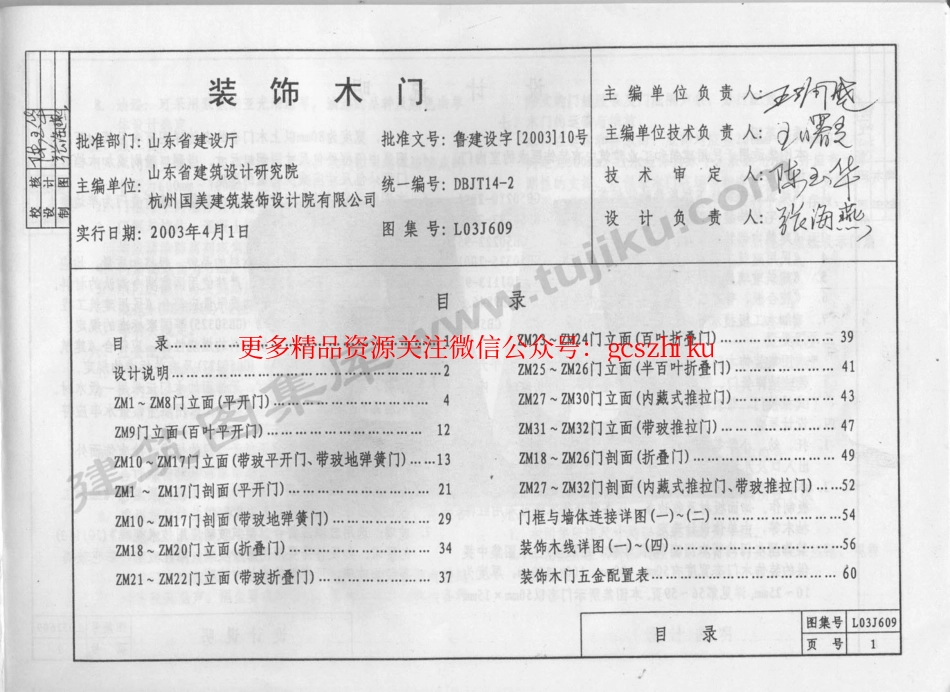 装饰木门
批准部门：山东省建设厅
批准文号：鲁建设字[2003]10号
主编单位：山东省建筑设计研究院
杭州国美建筑装饰设计院有限公司
统一编号：DBJT14-2
实行日期：2003年4月1日
图集号：L03J609
主编单位负责人：
主编单位技术负责人：
技术审定人：陈玉华
设计负责人：张海燕
校核
设计
制图
目录
目 录……1
设计说明……2
ZM1～ZM8门立面(平开门)……4
ZM9门立面(百叶平开门)……12
ZM10～ZM17门立面(带玻平开门、带玻地弹簧门)……13
ZM1～ZM17门剖面(平开门)……21
ZM10～ZM17门剖面(带玻地弹簧门)……29
ZM18～ZM20门立面(折叠门)……34
ZM21～ZM22门立面(带玻折叠门)……37
ZM23～ZM24门立面(百叶折叠门)……39
ZM25～ZM26门立面(半百叶折叠门)……41
ZM27～ZM30门立面(内藏式推拉门)……43
ZM31～ZM32门立面(带玻推拉门)……47
ZM18～ZM26门剖面(折叠门)……49
ZM27～ZM32门剖面(内藏式推拉门、带玻推拉门)……52
门框与墙体连接详图(一)～(二)……54
装饰木线详图(一)～(四)……56
装饰木门五金配置表……60
更多精品资源关注微信公众号：gcszhiku
建筑图集库 www.tujiku.com
目录
图集号 L03J609
页号 1